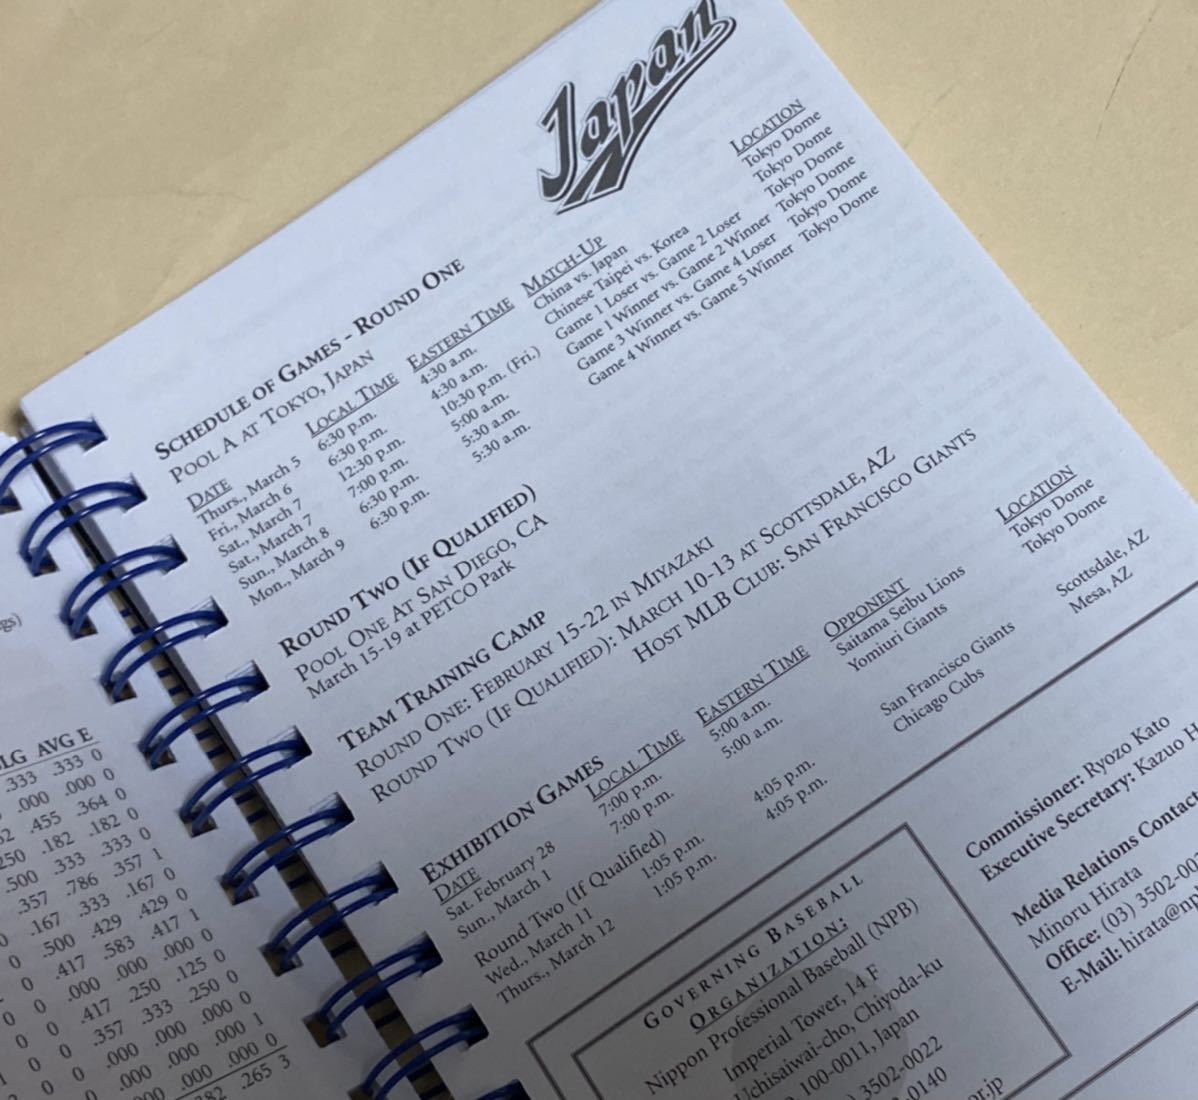 Japan
SCHEDULE OF GAMES - ROUND ONE
POOL A AT TOKYO, JAPAN
DATE LOCAL TIME EASTERN TIME MATCH-UP LOCATION
Thurs., March 5 6:30 p.m. 4:30 a.m. China vs. Japan Tokyo Dome
Fri., March 6 6:30 p.m. 4:30 a.m. Chinese Taipei vs. Korea Tokyo Dome
Sat., March 7 12:30 p.m. 10:30 p.m. (Fri.) Game 1 Loser vs. Game 2 Loser Tokyo Dome
Sat., March 7 7:00 p.m. 5:00 a.m. Game 1 Winner vs. Game 2 Winner Tokyo Dome
Sun., March 8 6:30 p.m. 5:30 a.m. Game 3 Winner vs. Game 4 Loser Tokyo Dome
Mon., March 9 6:30 p.m. 5:30 a.m. Game 4 Winner vs. Game 5 Winner Tokyo Dome
ROUND TWO (IF QUALIFIED)
POOL ONE AT SAN DIEGO, CA
March 15-19 at PETCO Park
TEAM TRAINING CAMP
ROUND ONE: FEBRUARY 15-22 IN MIYAZAKI
ROUND TWO (IF QUALIFIED): MARCH 10-13 AT SCOTTSDALE, AZ
HOST MLB CLUB: SAN FRANCISCO GIANTS
EXHIBITION GAMES
DATE LOCAL TIME EASTERN TIME OPPONENT LOCATION
Sat. February 28 7:00 p.m. 5:00 a.m. Saitama Seibu Lions Tokyo Dome
Sun., March 1 7:00 p.m. 5:00 a.m. Yomiuri Giants Tokyo Dome
Round Two (If Qualified)
Wed., March 11 1:05 p.m. 4:05 p.m. San Francisco Giants Scottsdale, AZ
Thurs., March 12 1:05 p.m. 4:05 p.m. Chicago Cubs Mesa, AZ
GOVERNING BASEBALL
ORGANIZATION:
Nippon Professional Baseball (NPB)
Imperial Tower, 14F
Uchisaiwai-cho, Chiyoda-ku
100-0011, Japan
3502-0022
0140
or.jp
Commissioner: Ryozo Kato
Executive Secretary: Kazuo H
Media Relations Contac
Minoru Hirata
Office: (03) 3502-00
E-Mail: hirata@np
gs)
LG AVG E
.333 .333 0
.000 .000 0
.455 .364 0
.250 .182 .182 0
.500 .333 .333 0
.357 .786 .357 1
.167 .333 .167 0
.500 .429 .429 0
.417 .583 .417 1
.000 .000 .000 0
0 .417 .250 .125 0
0 .357 .333 .250 0
0 .000 .000 .000 0
.000 .000 .000 1
.000 .000 .000 0
.382 .265 3